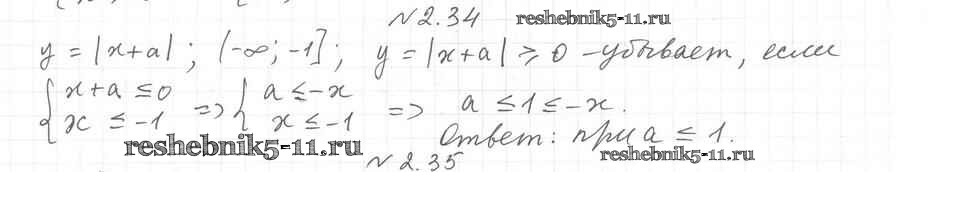 N 2.34 reshebnik5-11.ru
y = |x+a| ; (-∞; -1] ; y = |x+a| ≥ 0 - убывает, если
{ x+a ≤ 0 => { a ≤ -x => a ≤ 1 ≤ -x.
x ≤ -1 x ≤ -1
Ответ: при a ≤ 1.
reshebnik5-11.ru reshebnik5-11.ru
N 2.35